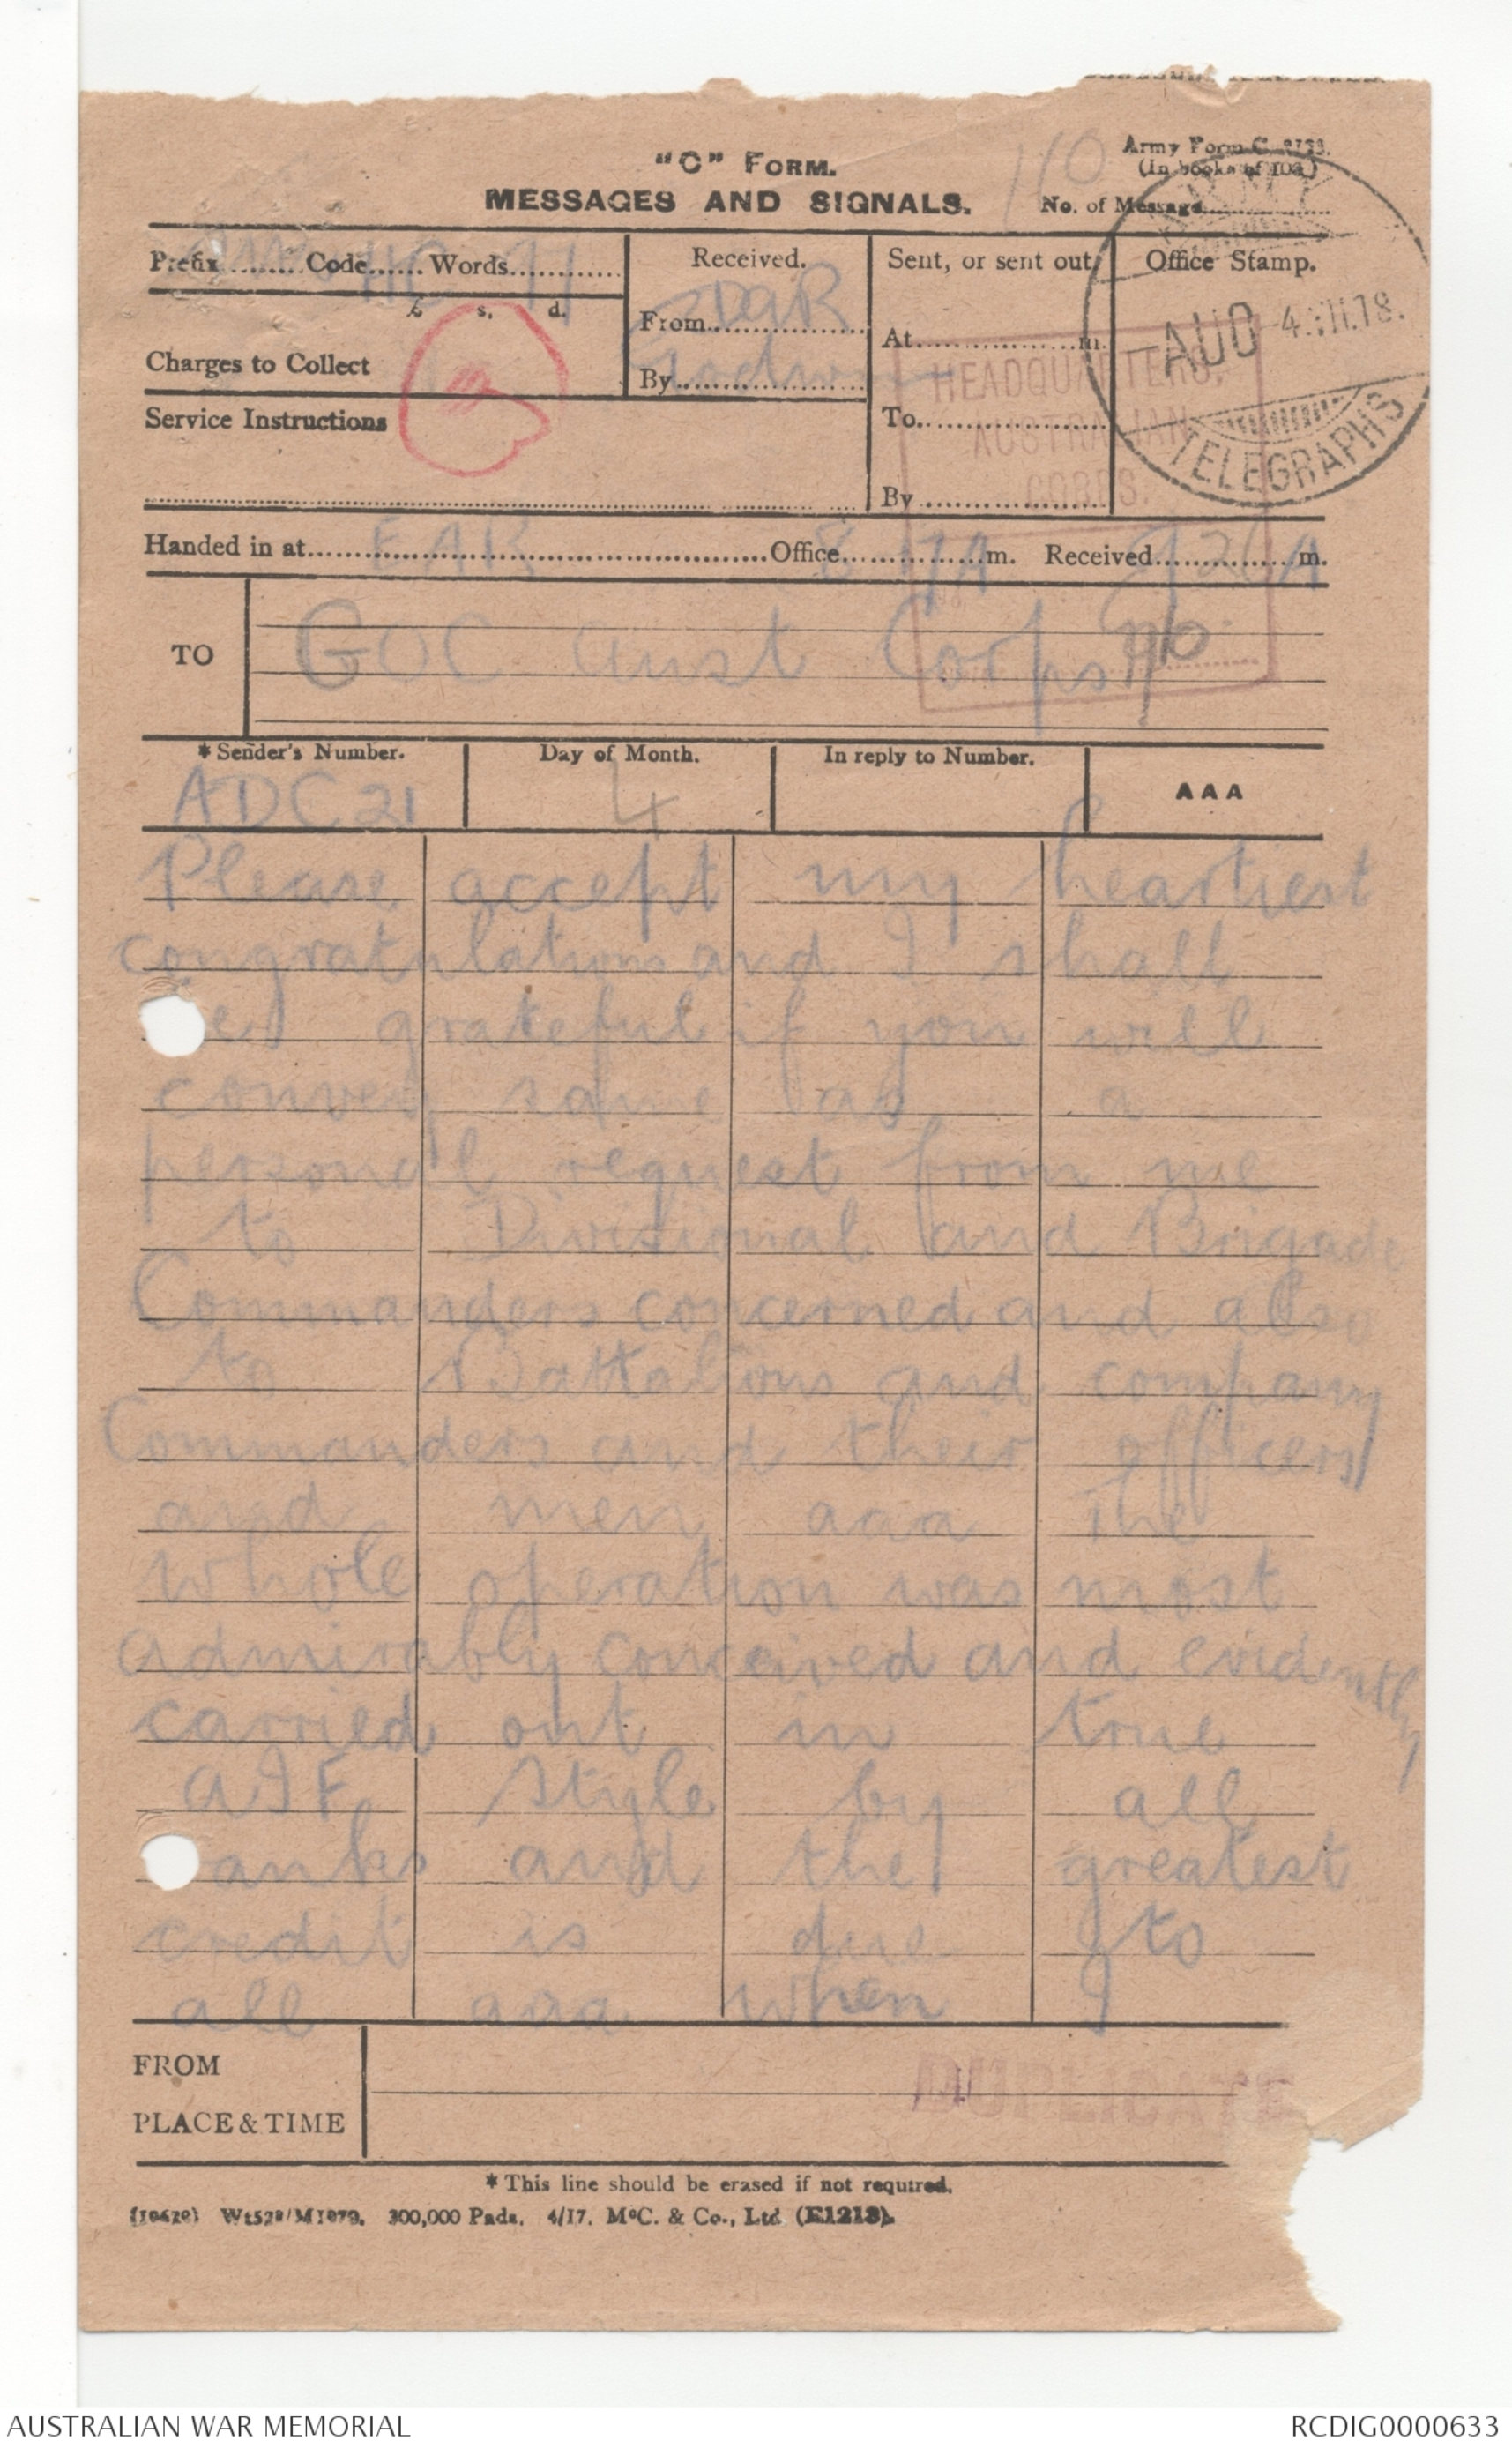 "C" FORM.
MESSAGES AND SIGNALS.
110
Army Form C. 2123.
(In books of 100.)
No. of Message
Prefix Code HC Words 71
£ s. d.
Charges to Collect
Service Instructions
Received.
From
By
Sent, or sent out
At m.
To
By
Office Stamp.
ARMY
AUO 4.VII.18.
TELEGRAPHS
HEADQUARTERS,
AUSTRALIAN
CORPS.
Handed in at EAR Office 8 17A m. Received 9 20A m.
TO
GOC Aust Corps
*Sender's Number.
ADC 21
Day of Month.
4
In reply to Number.
AAA
Please accept my heartiest
congratulations and I shall
be grateful if you will
convey same as a
personal request from me
to Divisional and Brigade
Commanders concerned and also
to Battalions and company
Commanders and their officers
and men aaa The
whole operation was most
admirably conceived and evidently
carried out in true
AIF Style by all
ranks and the greatest
credit is due to
all aaa when I
FROM
PLACE & TIME
DUPLICATE
*This line should be erased if not required.
(10620) Wt528/M1970. 300,000 Pads. 4/17. McC. & Co., Ltd (E1213).
AUSTRALIAN WAR MEMORIAL
RCDIG0000633